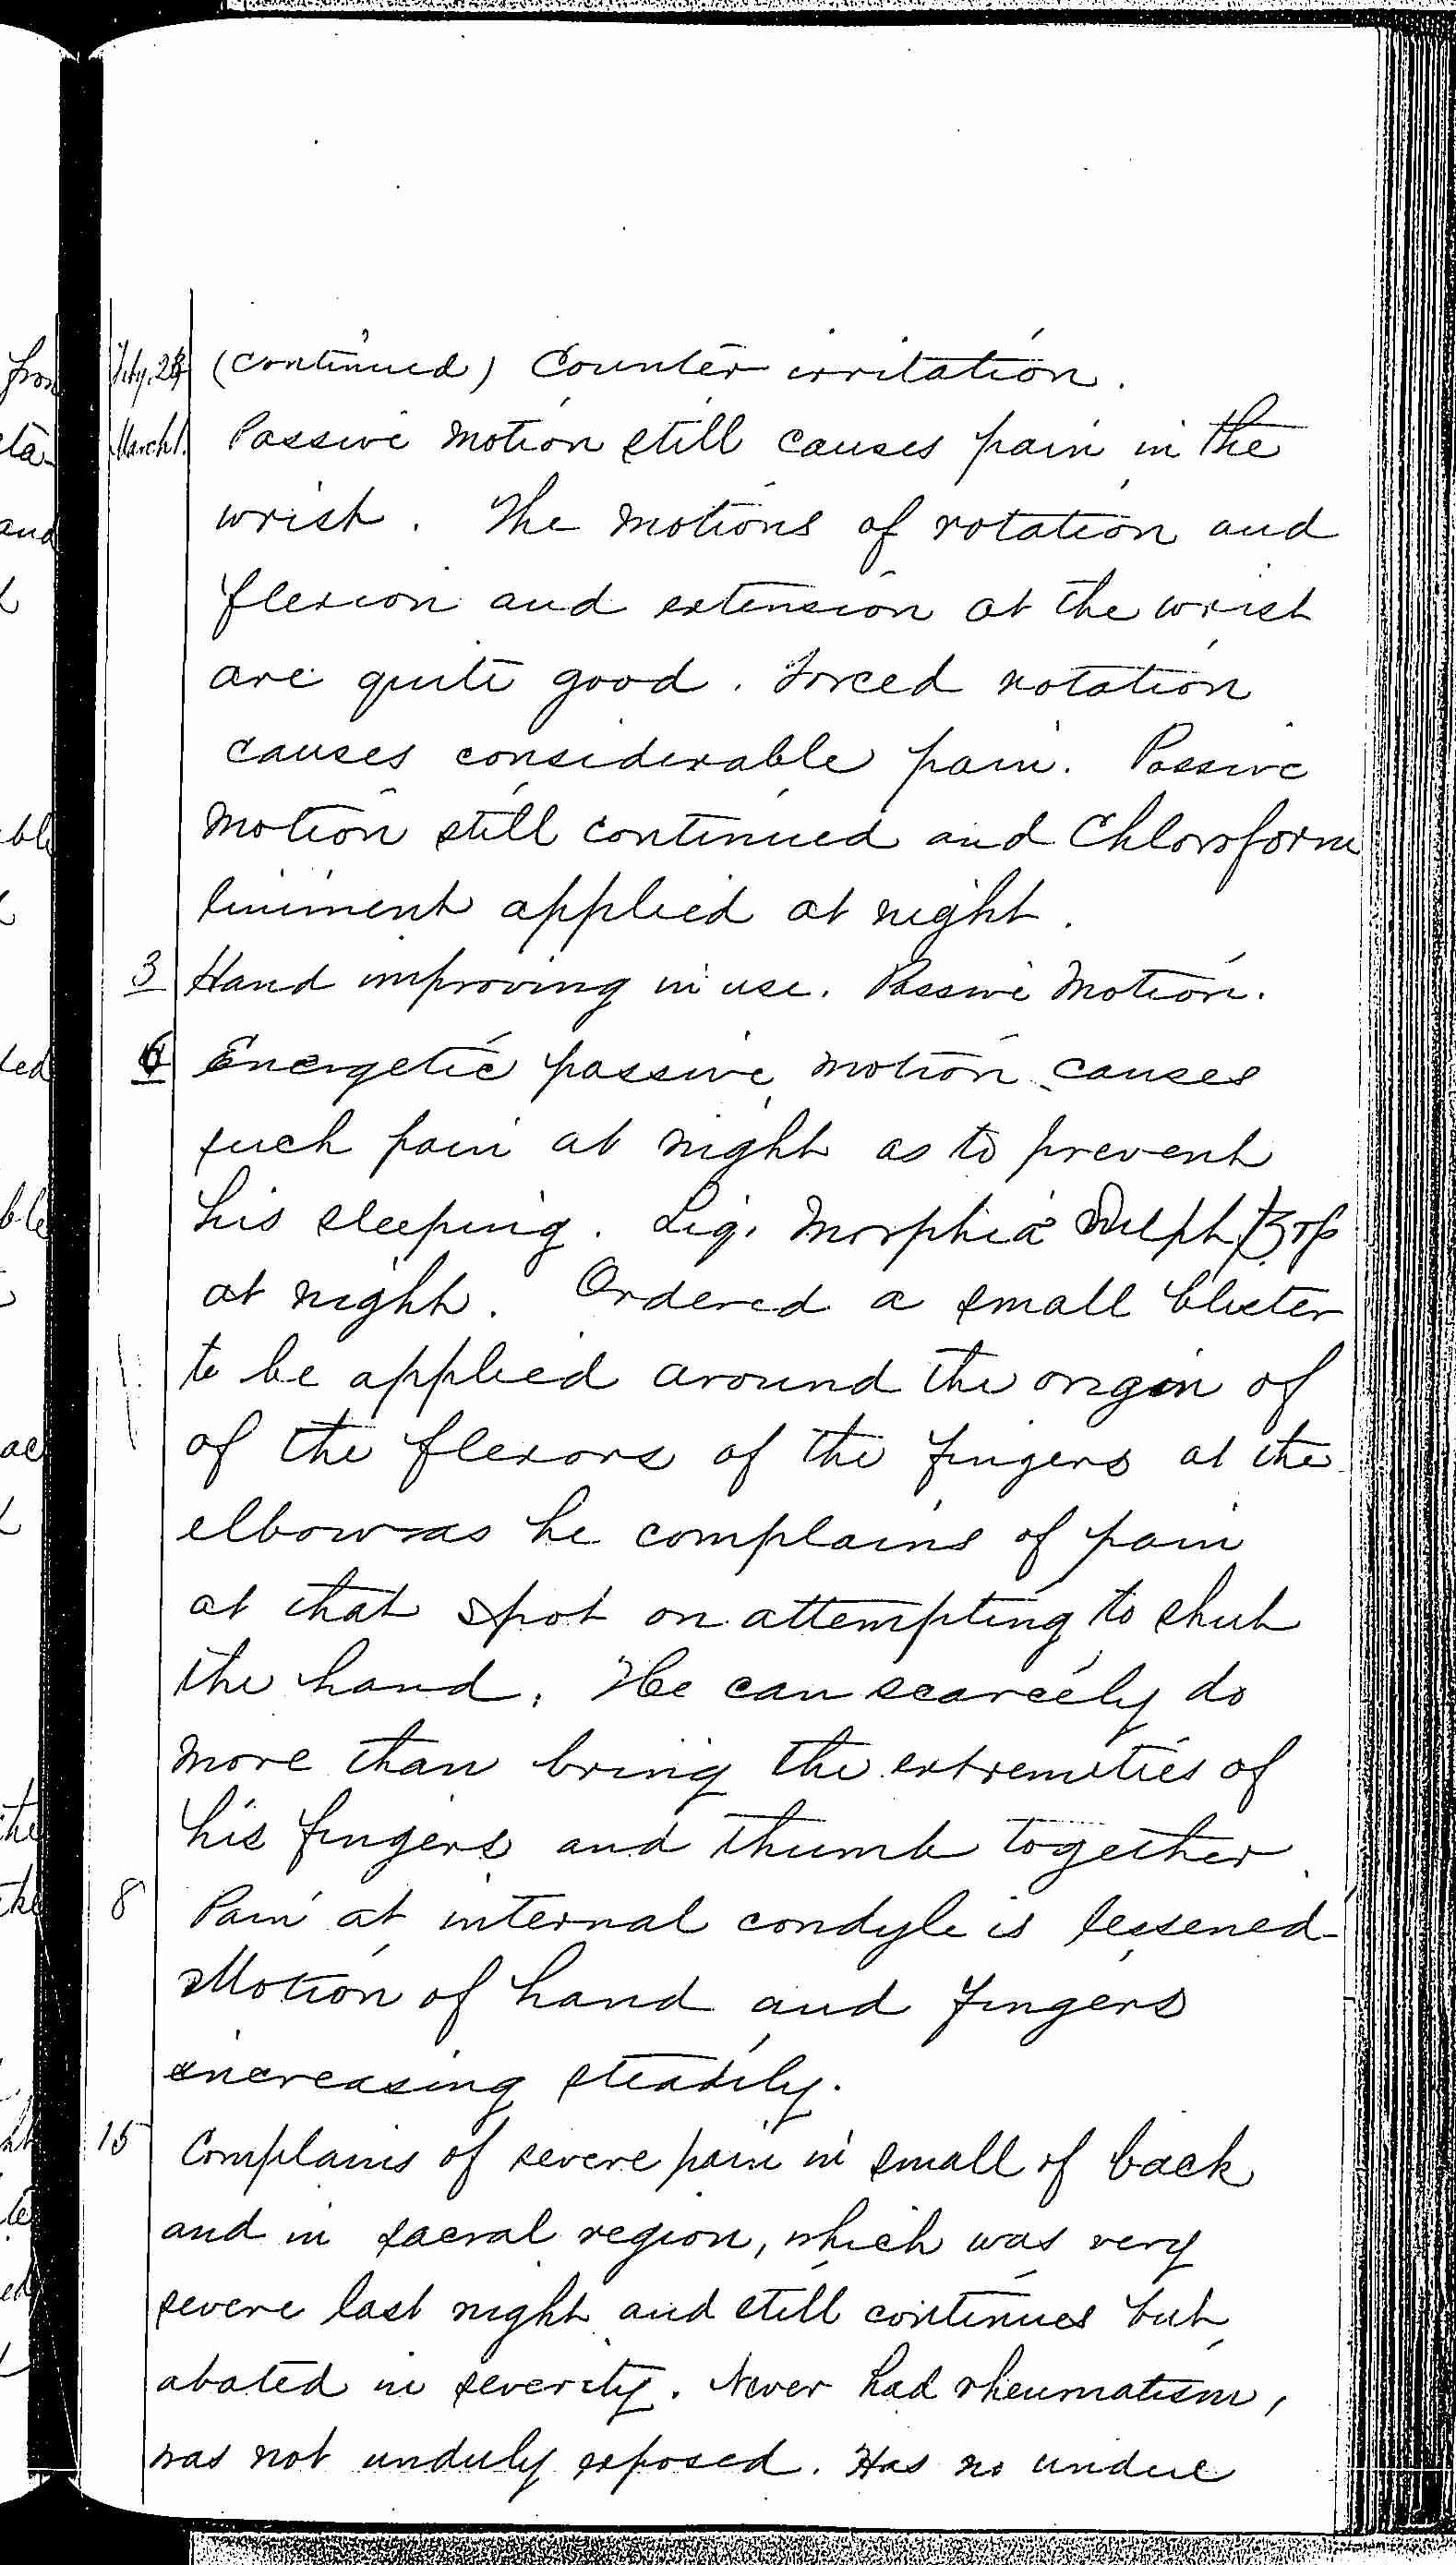 (continued) Counter irritation.
March 1. Passive motion still causes pain in the
wrist. The motions of rotation and
flexion and extension at the wrist
are quite good. Forced rotation
causes considerable pain. Passive
motion still continued and Chloroform
liniment applied at night.
3 Hand improving in use. Passive motion.
6 Energetic passive motion causes
such pain at night as to prevent
his sleeping. Liq. Morphia Sulph
at night. Ordered a small blister
to be applied around the origin of
of the flexors of the fingers at the
elbow as he complains of pain
at that spot on attempting to shut
the hand. He can scarcely do
more than bring the extremities of
his fingers and thumb together.
8 Pain at internal condyle is lessened
Motion of hand and fingers
increasing steadily.
15 Complains of severe pain in small of back
and in sacral region, which was very
severe last night and still continues but
abated in severity. Never had rheumatism,
was not unduly exposed. Has no undue